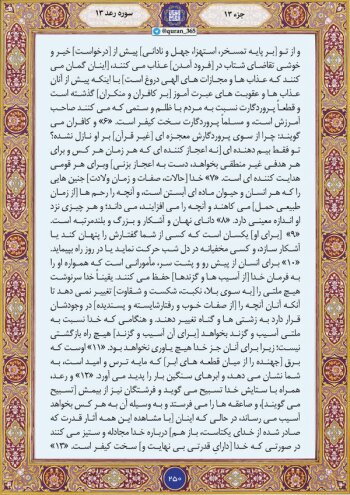 جزء ۱۳
سوره رعد ۱۳
@quran_365
و از تو [بر پایه تمسخر، استهزا، جهل و نادانی] پیش از [درخواست] خیر و
خوشی تقاضای شتاب در [فرود آمدن] عذاب می کنند، [اینان گمان می
کنند که عذاب ها و مجازات های الهی دروغ است] با اینکه پیش از آنان
عذاب ها و عقوبت های عبرت آموز [بر کافران و منکران] گذشته است
و قطعاً پروردگارت نسبت به مردم با ظلم و ستمی که می کنند صاحب
آمرزش است، و مسلماً پروردگارت سخت کیفر است. «۶» و کافران می
گویند: چرا از سوی پروردگارش معجزه ای [غیر قرآن] بر او نازل نشده؟
تو فقط بیم دهنده ای [نه اعجاز کننده ای که هر زمان هر کس و برای
هر هدفی غیر منطقی بخواهد، دست به اعجاز بزنی] و برای هر قومی
هدایت کننده ای است. «۷» خدا [حالات، صفات و زمان ولادت] جنین هایی
را که هر انسان و حیوان ماده ای آبستن است، و آنچه را رحم ها [از زمان
طبیعی حمل] می کاهند و آنچه را می افزایند، می داند؛ و هر چیزی نزد
او اندازه معینی دارد. «۸» دانای نهان و آشکار و بزرگ و بلندمرتبه است.
«۹» [برای او] یکسان است که کسی از شما گفتارش را پنهان کند یا
آشکار سازد، و کسی مخفیانه در دل شب حرکت نماید یا در روز راه بپیماید.
«۱۰» برای انسان از پیش رو و پشت سر، مأمورانی است که همواره او را
به فرمان خدا [از آسیب ها و گزندها] حفظ می کنند. یقیناً خدا سرنوشت
هیچ ملتی را [به سوی بلا، نکبت، شکست و شقاوت] تغییر نمی دهد تا
آنکه آنان آنچه را [از صفات خوب و رفتارشایسته و پسندیده] در وجودشان
قرار دارد به زشتی ها و گناه تغییر دهند. و هنگامی که خدا نسبت به
ملتی آسیب و گزند بخواهد [برای آن آسیب و گزند] هیچ راه بازگشتی
نیست؛ زیرا برای آنان جز خدا هیچ یاوری نخواهد بود. «۱۱» اوست که
برق [جهنده را از میان قطعه های ابر] که مایه ترس و امید است، به
شما نشان می دهد، و ابرهای سنگین بار را پدید می آورد. «۱۲» و رعد،
همراه با ستایش خدا تسبیح می گوید و فرشتگان نیز از بیمش [تسبیح
می گویند]، و صاعقه ها را می فرستد و به وسیله آن به هر کس بخواهد
آسیب می رساند، در حالی که اینان [با مشاهده این همه آثار قدرت که
صادر شده از خدای یکتاست، باز هم] درباره خدا مجادله و ستیز می کنند
در صورتی که خدا [دارای قدرتی بی نهایت و] سخت کیفر است. «۱۳»
۲۵۰